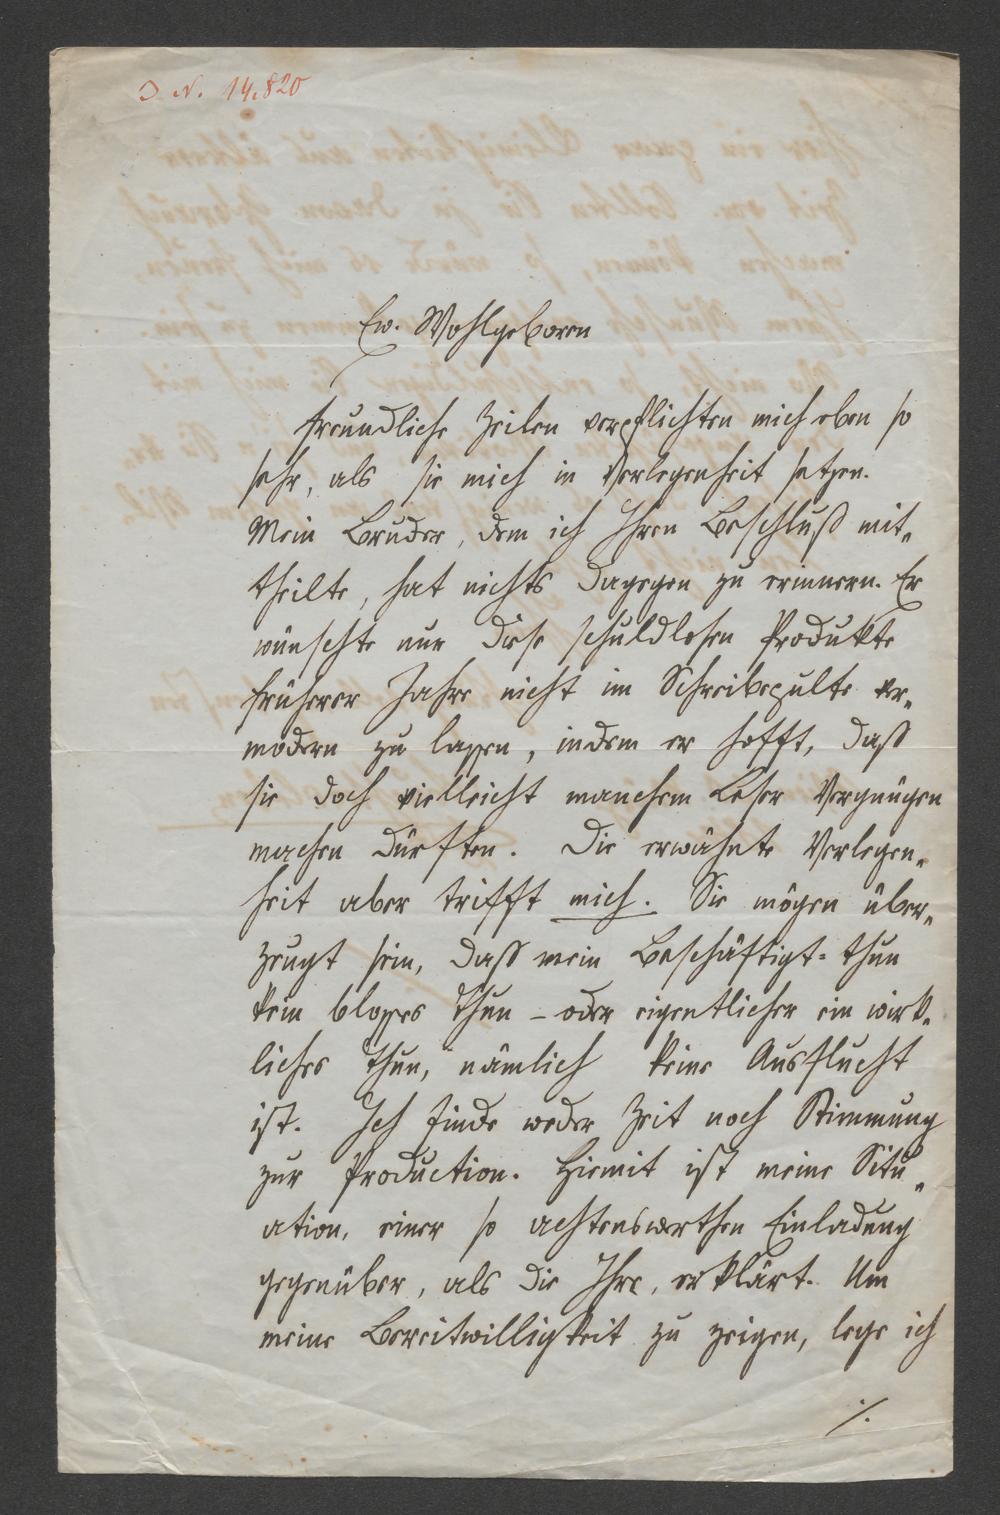 J. N. 14.820
Ew. Wohlgeboren
freundliche Zeilen verpflichten mich eben so
sehr, als sie mich in Verlegenheit setzen.
Mein Bruder, dem ich Ihren Beschluß mit-
theilte, hat nichts dagegen zu erinnern. Er
wünschte nur diese schuldlosen Produkte
früherer Jahre nicht im Schreibepulte ver-
modern zu lassen, indem er hofft, daß
sie doch vielleicht manchem Leser Vergnügen
machen dürften. Die erwähnte Verlegen-
heit aber trifft mich. Sie mögen über-
zeugt sein, daß mein Beschäftigt-thun
kein bloßes Thun – oder eigentlicher ein wirk-
liches Thun, nämlich keine Ausflucht
ist. Ich finde weder Zeit noch Stimmung
zur Production. Hiemit ist meine Situ-
ation, einer so achtenswerthen Einladung
gegenüber, als die Ihre, erklärt. Um
meine Bereitwilligkeit zu zeigen, lege ich
./.